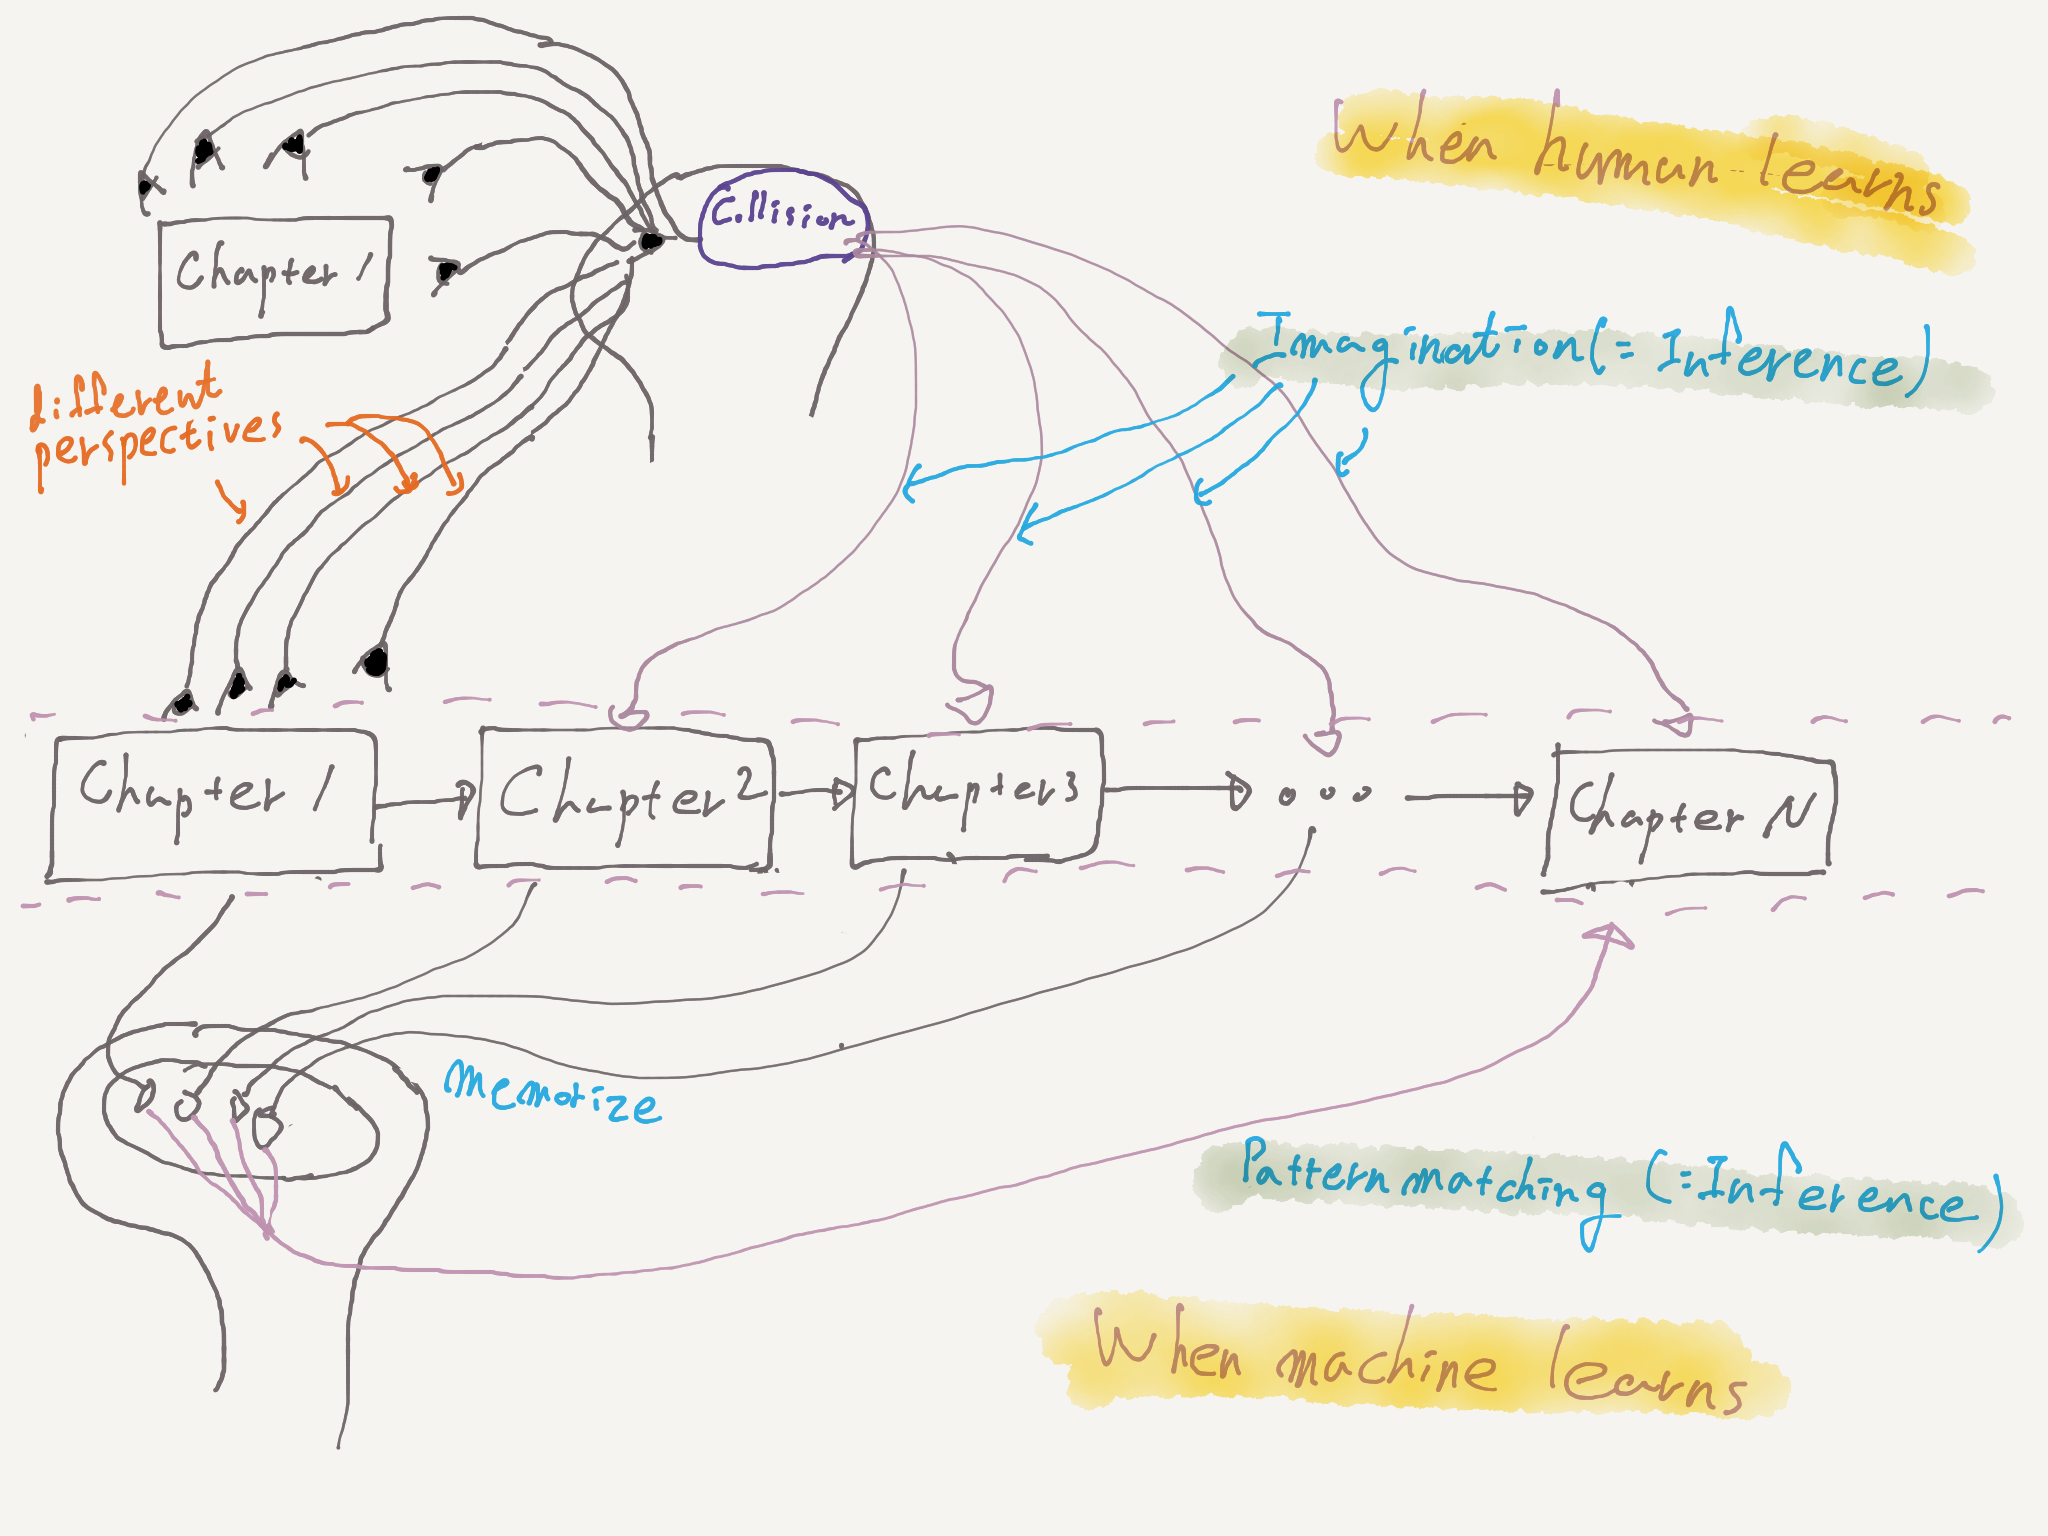 When human learns
Collision
Chapter 1
Imagination (= Inference)
different
perspectives
Chapter 1
Chapter 2
Chapter 3
Chapter N
memorize
Pattern matching (= Inference)
When machine learns